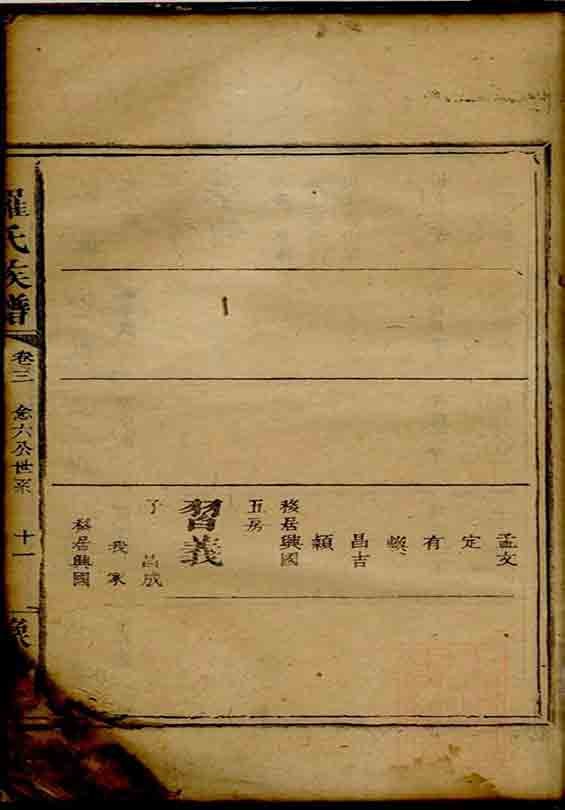 孟文
定
有
昌吉
穎
移居興國
五房
習義
子 昌成
我家
移居興國
羅氏族譜
卷三
念六公世系
十一